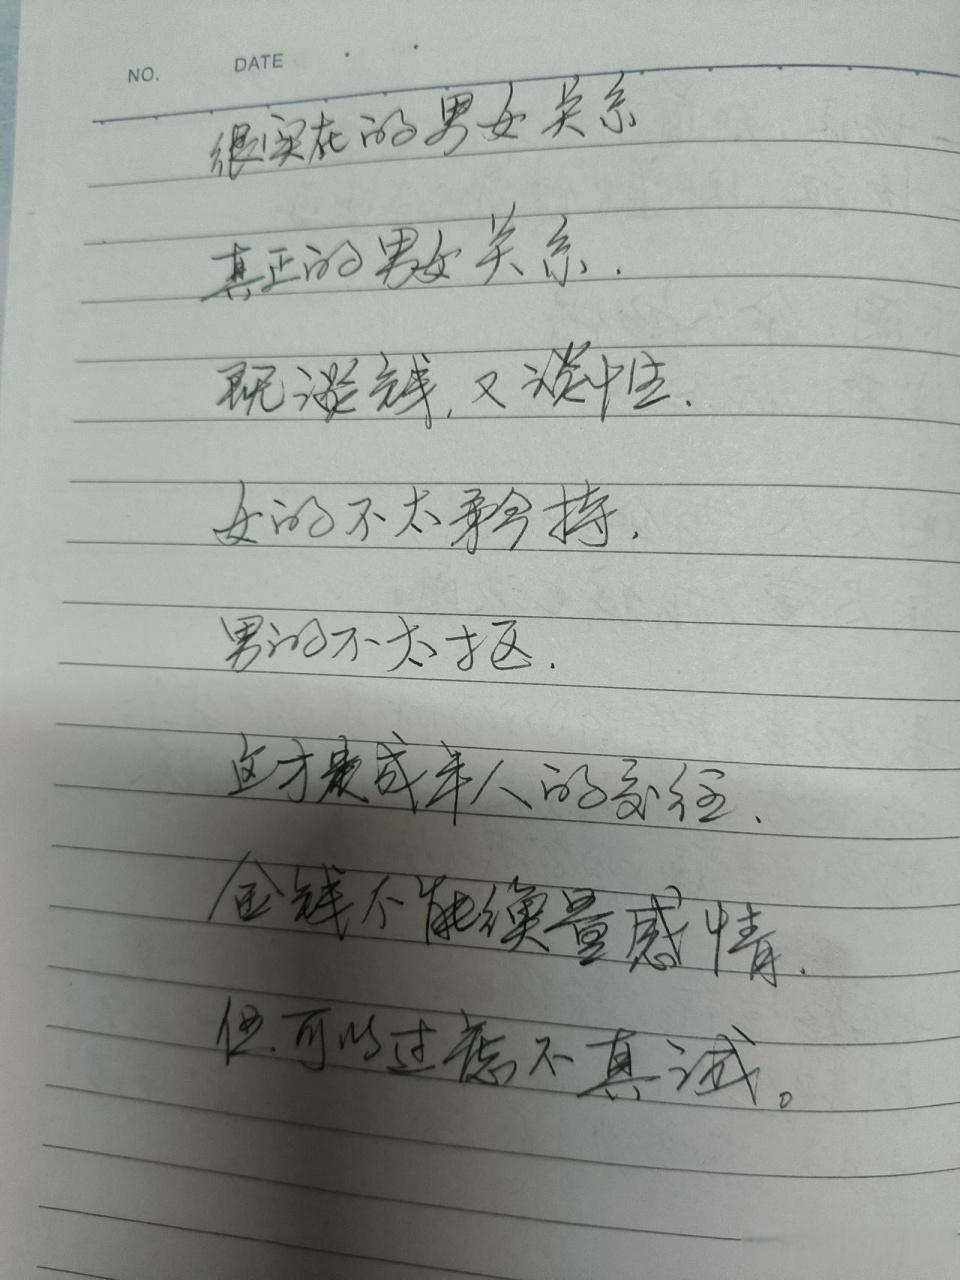 NO. DATE
很实在的男女关系
真正的男女关系.
既谈钱,又谈性.
女的不太矜持.
男的不太抠.
这才是成年人的交往.
金钱不能衡量感情.
但可以过虑不真诚。